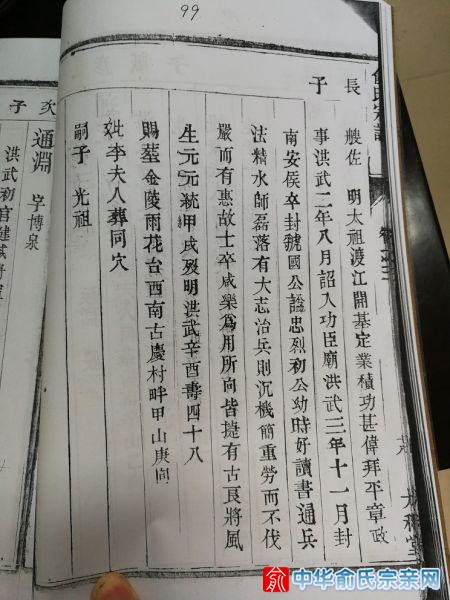 99
俞氏宗譜
長
子
艘佐 明太祖渡江開基定業積功甚偉拜平章政
事洪武二年八月詔入功臣廟洪武三年十一月封
南安侯卒封虢國公諡忠烈初公幼時好讀書通兵
法精水師磊落有大志治兵則沉機簡重勞而不伐
嚴而有惠故士卒咸樂為用所向皆捷有古良將風
生元元統甲戌歿明洪武辛酉壽四十八
賜塋金陵雨花台西南古慶村畔甲山庚向
妣李夫人葬同穴
嗣子 光祖
次
子
通淵 字博泉
洪武初官
中华俞氏宗亲网